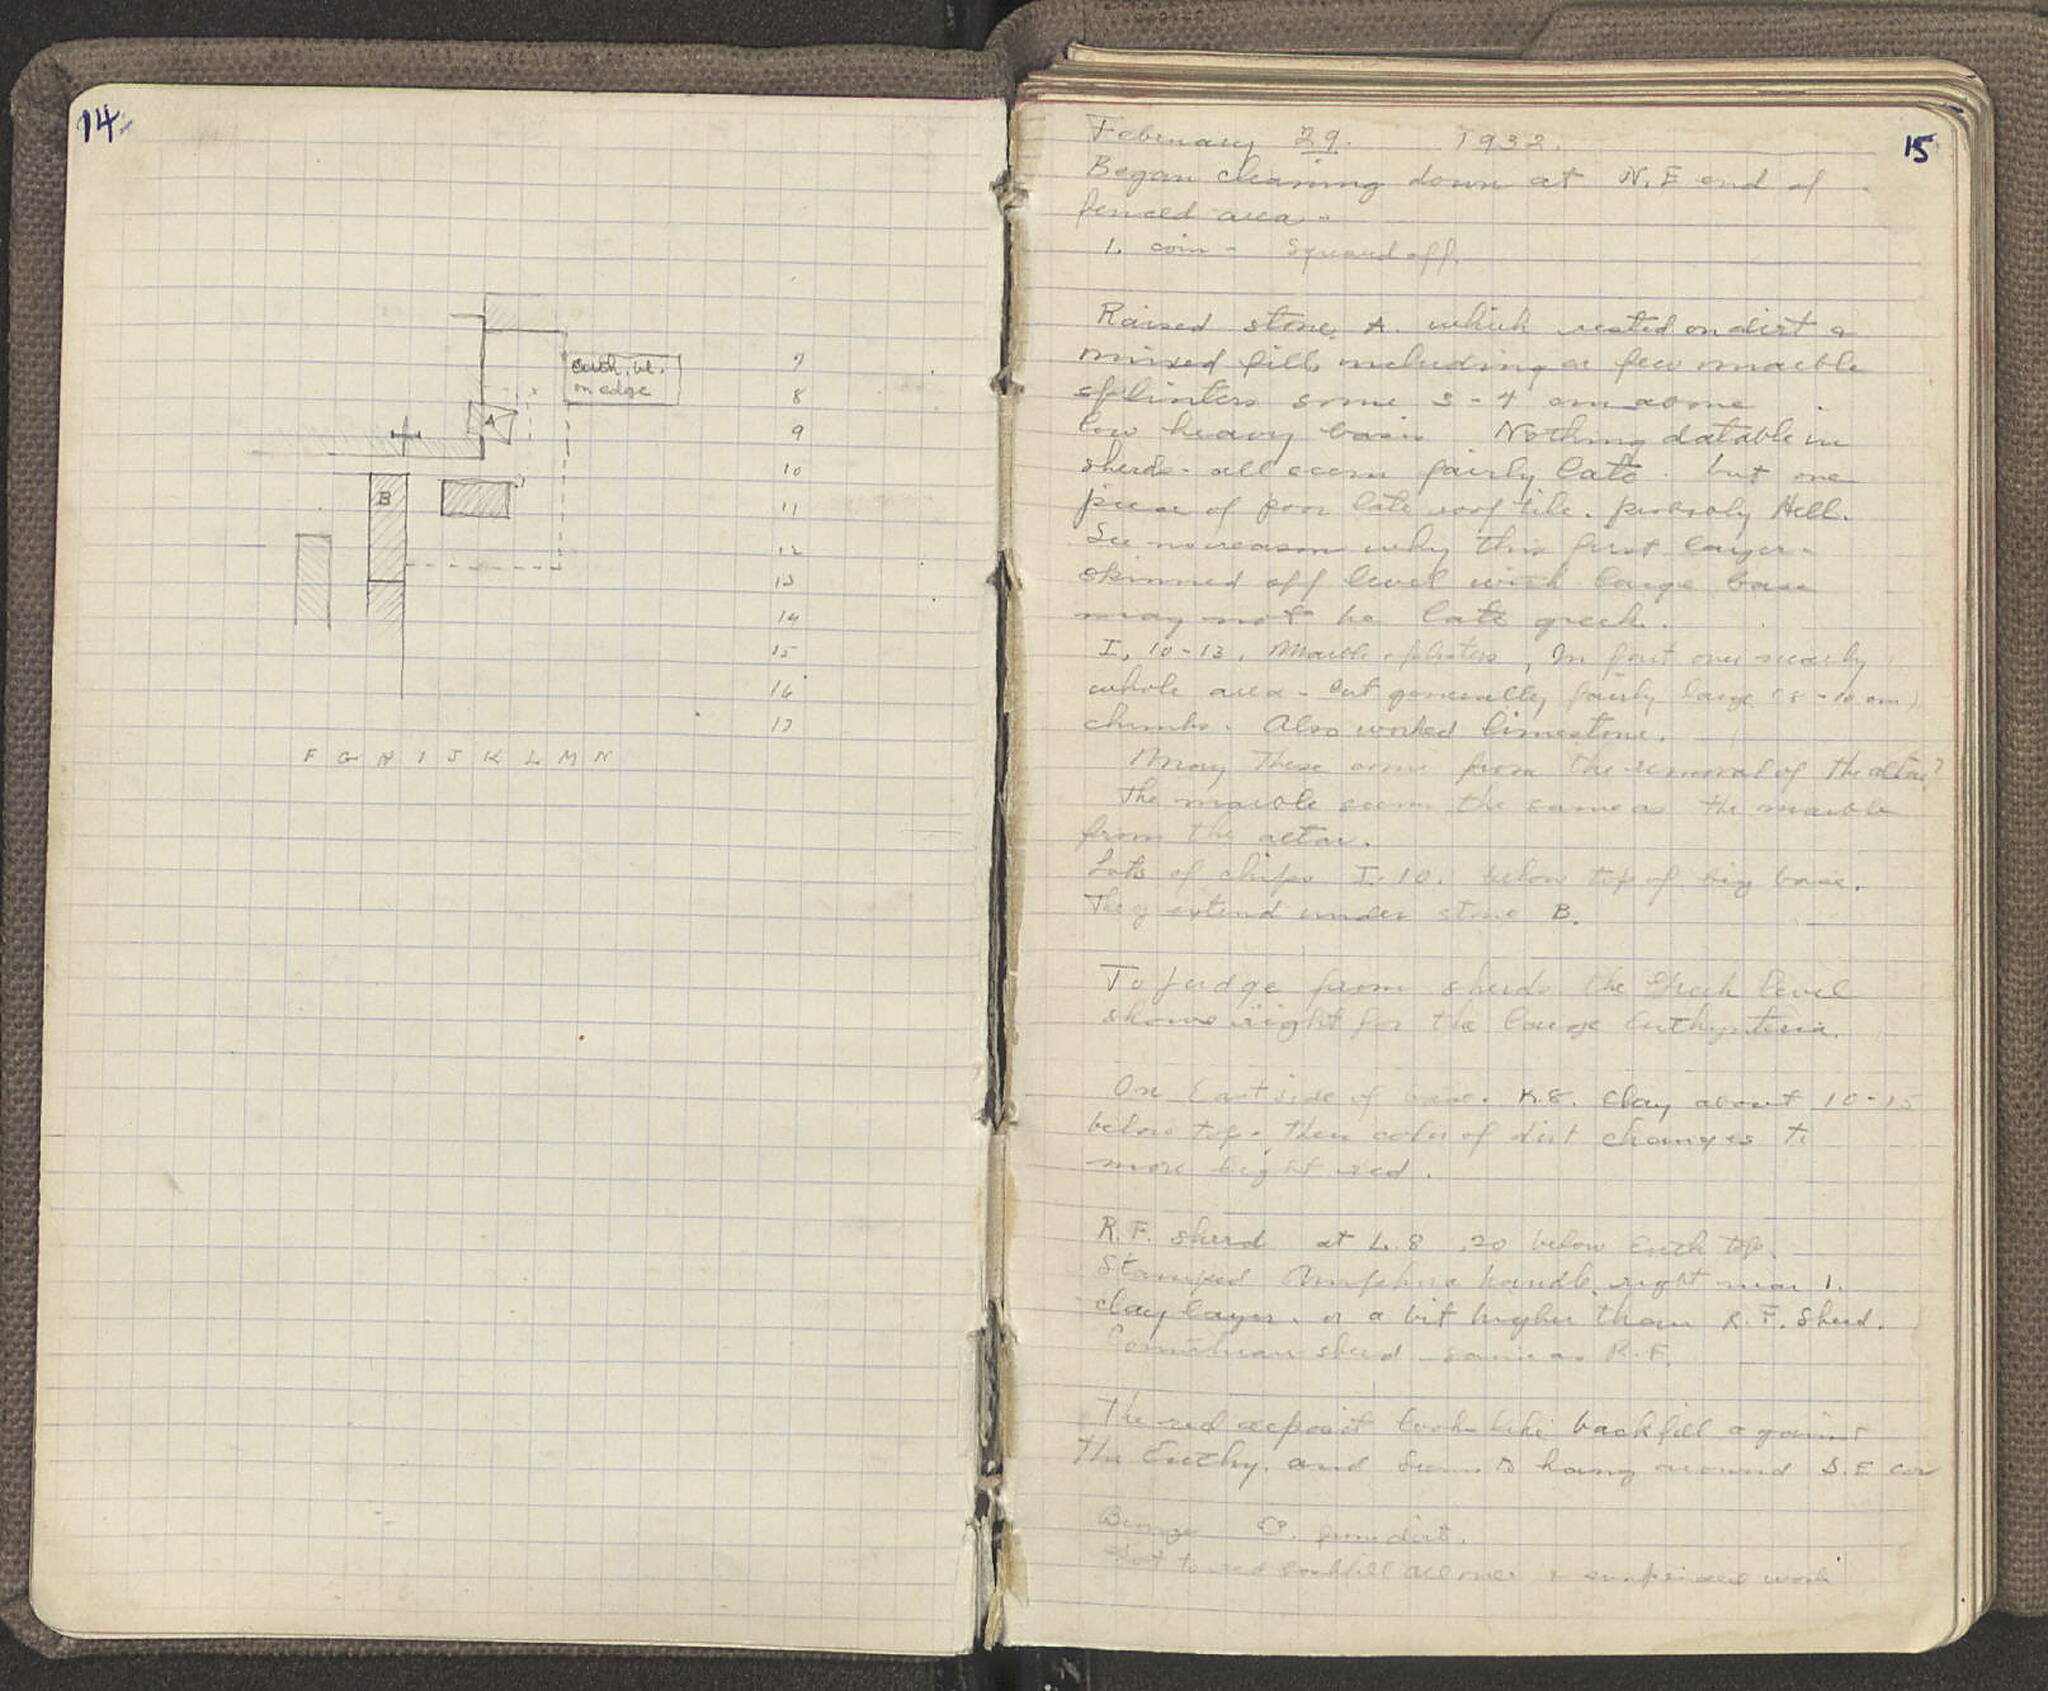 14
euth. bl.
on edge
A
B
7
8
9
10
11
12
13
14
15
16
17
F G H I J K L M N
15
February 29. 1932.
Began cleaning down at N.E end of
fenced area.
1. coin - Squared off.
Raised stone A. which rested on dirt &
mixed fill, including a few marble
splinters some 3-4 cm above
low heavy basis Nothing datable in
sherds - all seem fairly late. but one
piece of poor late roof tile. probably Hell.
See no reason why this first layer -
skinned off level with large base
may not be late greek.
I, 10-13. Marble splinters, In fact over nearly
whole area - but generally fairly large (8-10 cm)
chunks. Also worked limestone.
May these come from the removal of the altar?
The marble seems the same as the marble
from the altar.
Lots of chips I. 10. below top of big base.
They extend under stone B.
To judge from sherds the Greek level
shows right for the large Euthynteria.
On East side of base. K.8. Clay about 10-15
below top. then color of dirt changes to
more bright red.
R.F. sherd at L.8 .20 below Euth top.
Stamped Amphora handle right near 1.
clay layer. or a bit higher than R.F. Sherd.
Corinthian sherd same as R.F.
The red deposit looks like backfill against
the Euthy. and seems to hang around S.E cor
Bronze from dirt.
to red backfill all over &